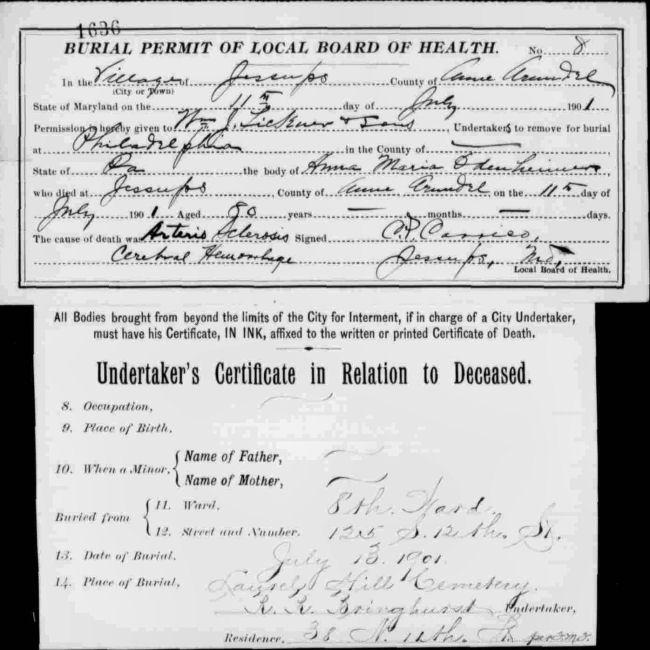 1636
BURIAL PERMIT OF LOCAL BOARD OF HEALTH. No. 8
In the Village of Jessups County of Anne Arundel
(City or Town)
State of Maryland on the 11th day of July 1901
Permission is hereby given to Wm. J. Tickner & Sons, Undertakers to remove for burial
at Philadelphia in the County of —
State of Pa the body of Anna Maria Odenheimer
who died at Jessups, County of Anne Arundel on the 11th day of
July 1901 Aged 80 years — months — days.
The cause of death was Arterio Sclerosis Signed C.P. Carrico,
Cerebral Hemorrhage Jessups, Md,
Local Board of Health.
All Bodies brought from beyond the limits of the City for Interment, if in charge of a City Undertaker,
must have his Certificate, IN INK, affixed to the written or printed Certificate of Death.
Undertaker's Certificate in Relation to Deceased.
8. Occupation,
9. Place of Birth,
10. When a Minor, Name of Father,
Name of Mother,
Buried from 11. Ward, 8th. Ward.
12. Street and Number. 125 S. 12th. St.
13. Date of Burial, July 13. 1901.
14. Place of Burial, Laurel Hill Cemetery.
R. R. Bringhurst Undertaker,
Residence, 38 N. 11th. St.